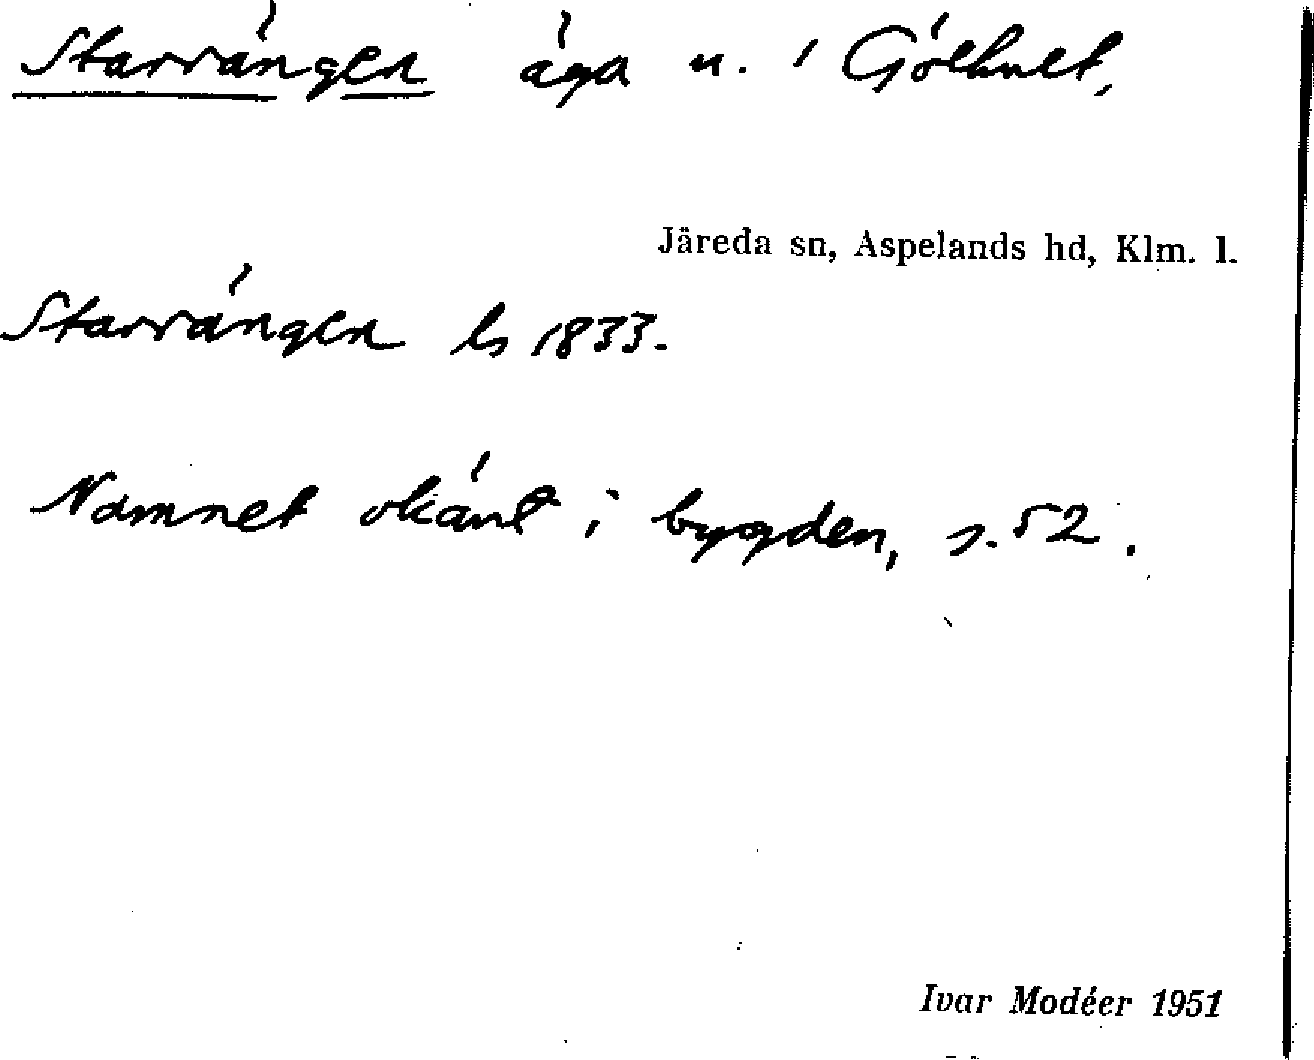 Starrängen äga u. i Gölhult,
Järeda sn, Aspelands hd, Klm. l.
Starrängen ls 1833.
Namnet okänt i bygden, s. 52.
Ivar Modéer 1951